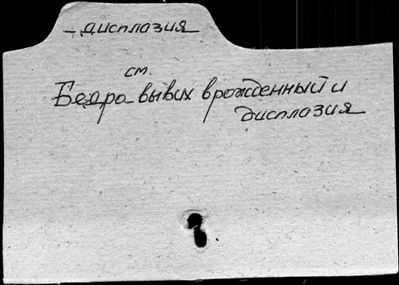 - дисплазия
см.
Бедра вывих врожденный и
дисплазия